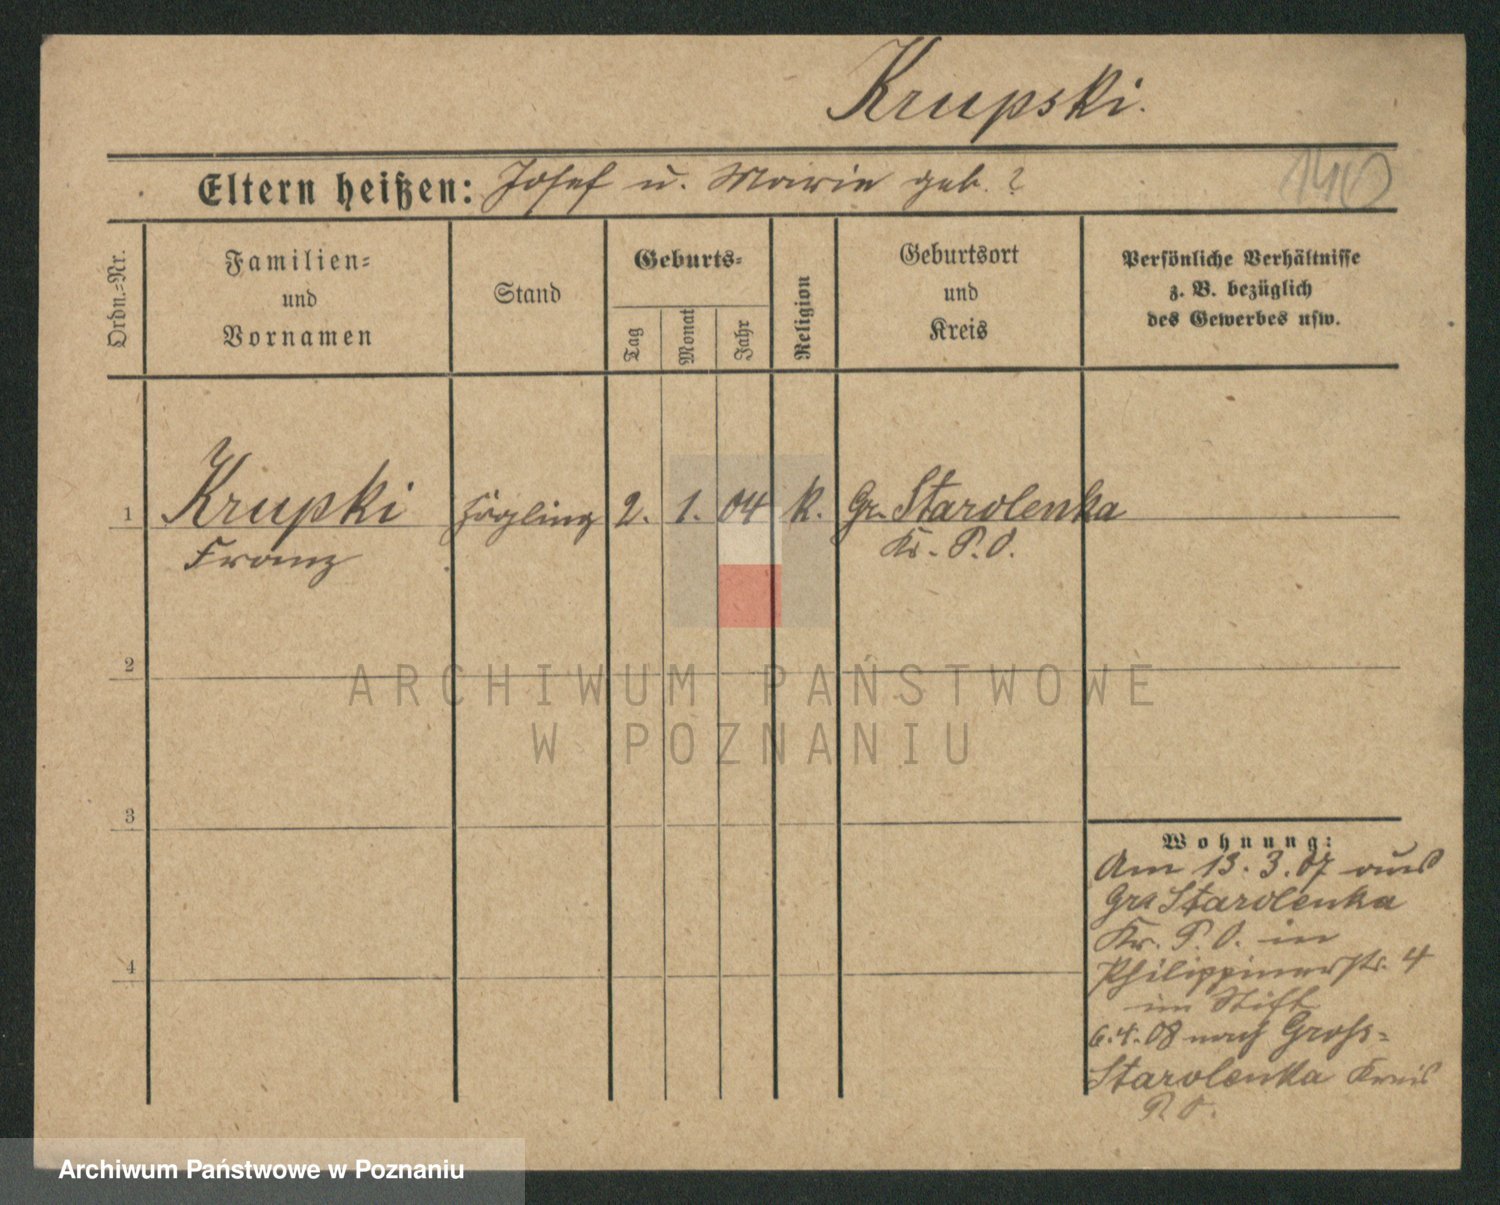 Krupski.
140
Eltern heißen: Josef u. Marie geb. ?
Ordn.=Nr.
Familien=
und
Vornamen
Stand
Geburts=
Tag
Monat
Jahr
Religion
Geburtsort
und
Kreis
Persönliche Verhältnisse
z. B. bezüglich
des Gewerbes usw.
1 Krupki Zögling 2. 1. 04 k. Gr. Starolenka
Franz Kr. P. O.
2
3
4
Wohnung:
Am 13. 3. 07 aus
Gr. Starolenka
Kr. P. O. in
Philippinerstr. 4
im Stift
6. 4. 08 nach Gross=
Starolenka Kreis
P. O.
ARCHIWUM PAŃSTWOWE
W POZNANIU
Archiwum Państwowe w Poznaniu